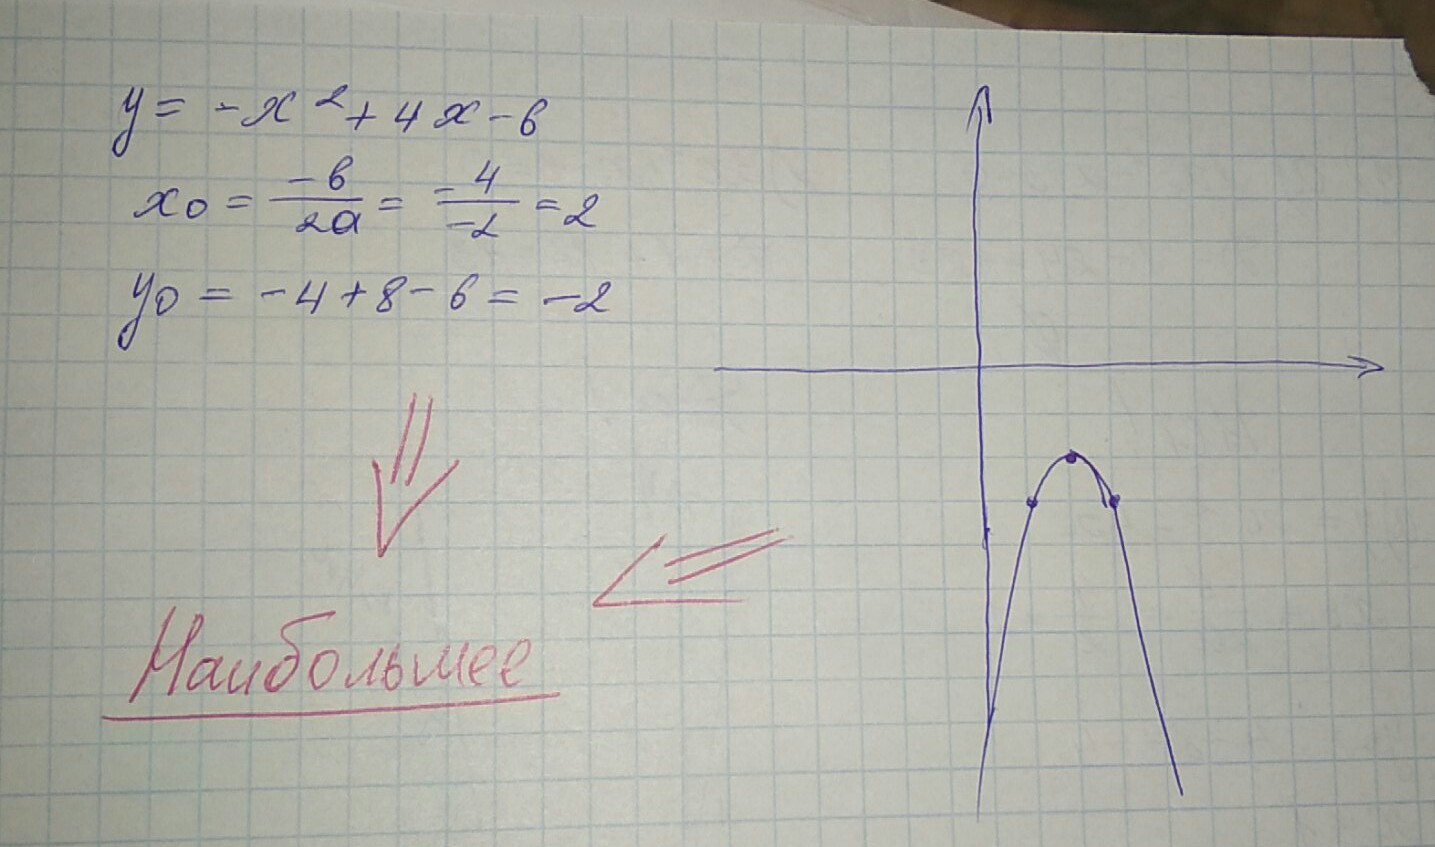 y = -x² + 4x - 6
x₀ = -b/2a = -4/-2 = 2
y₀ = -4 + 8 - 6 = -2
Наибольшее